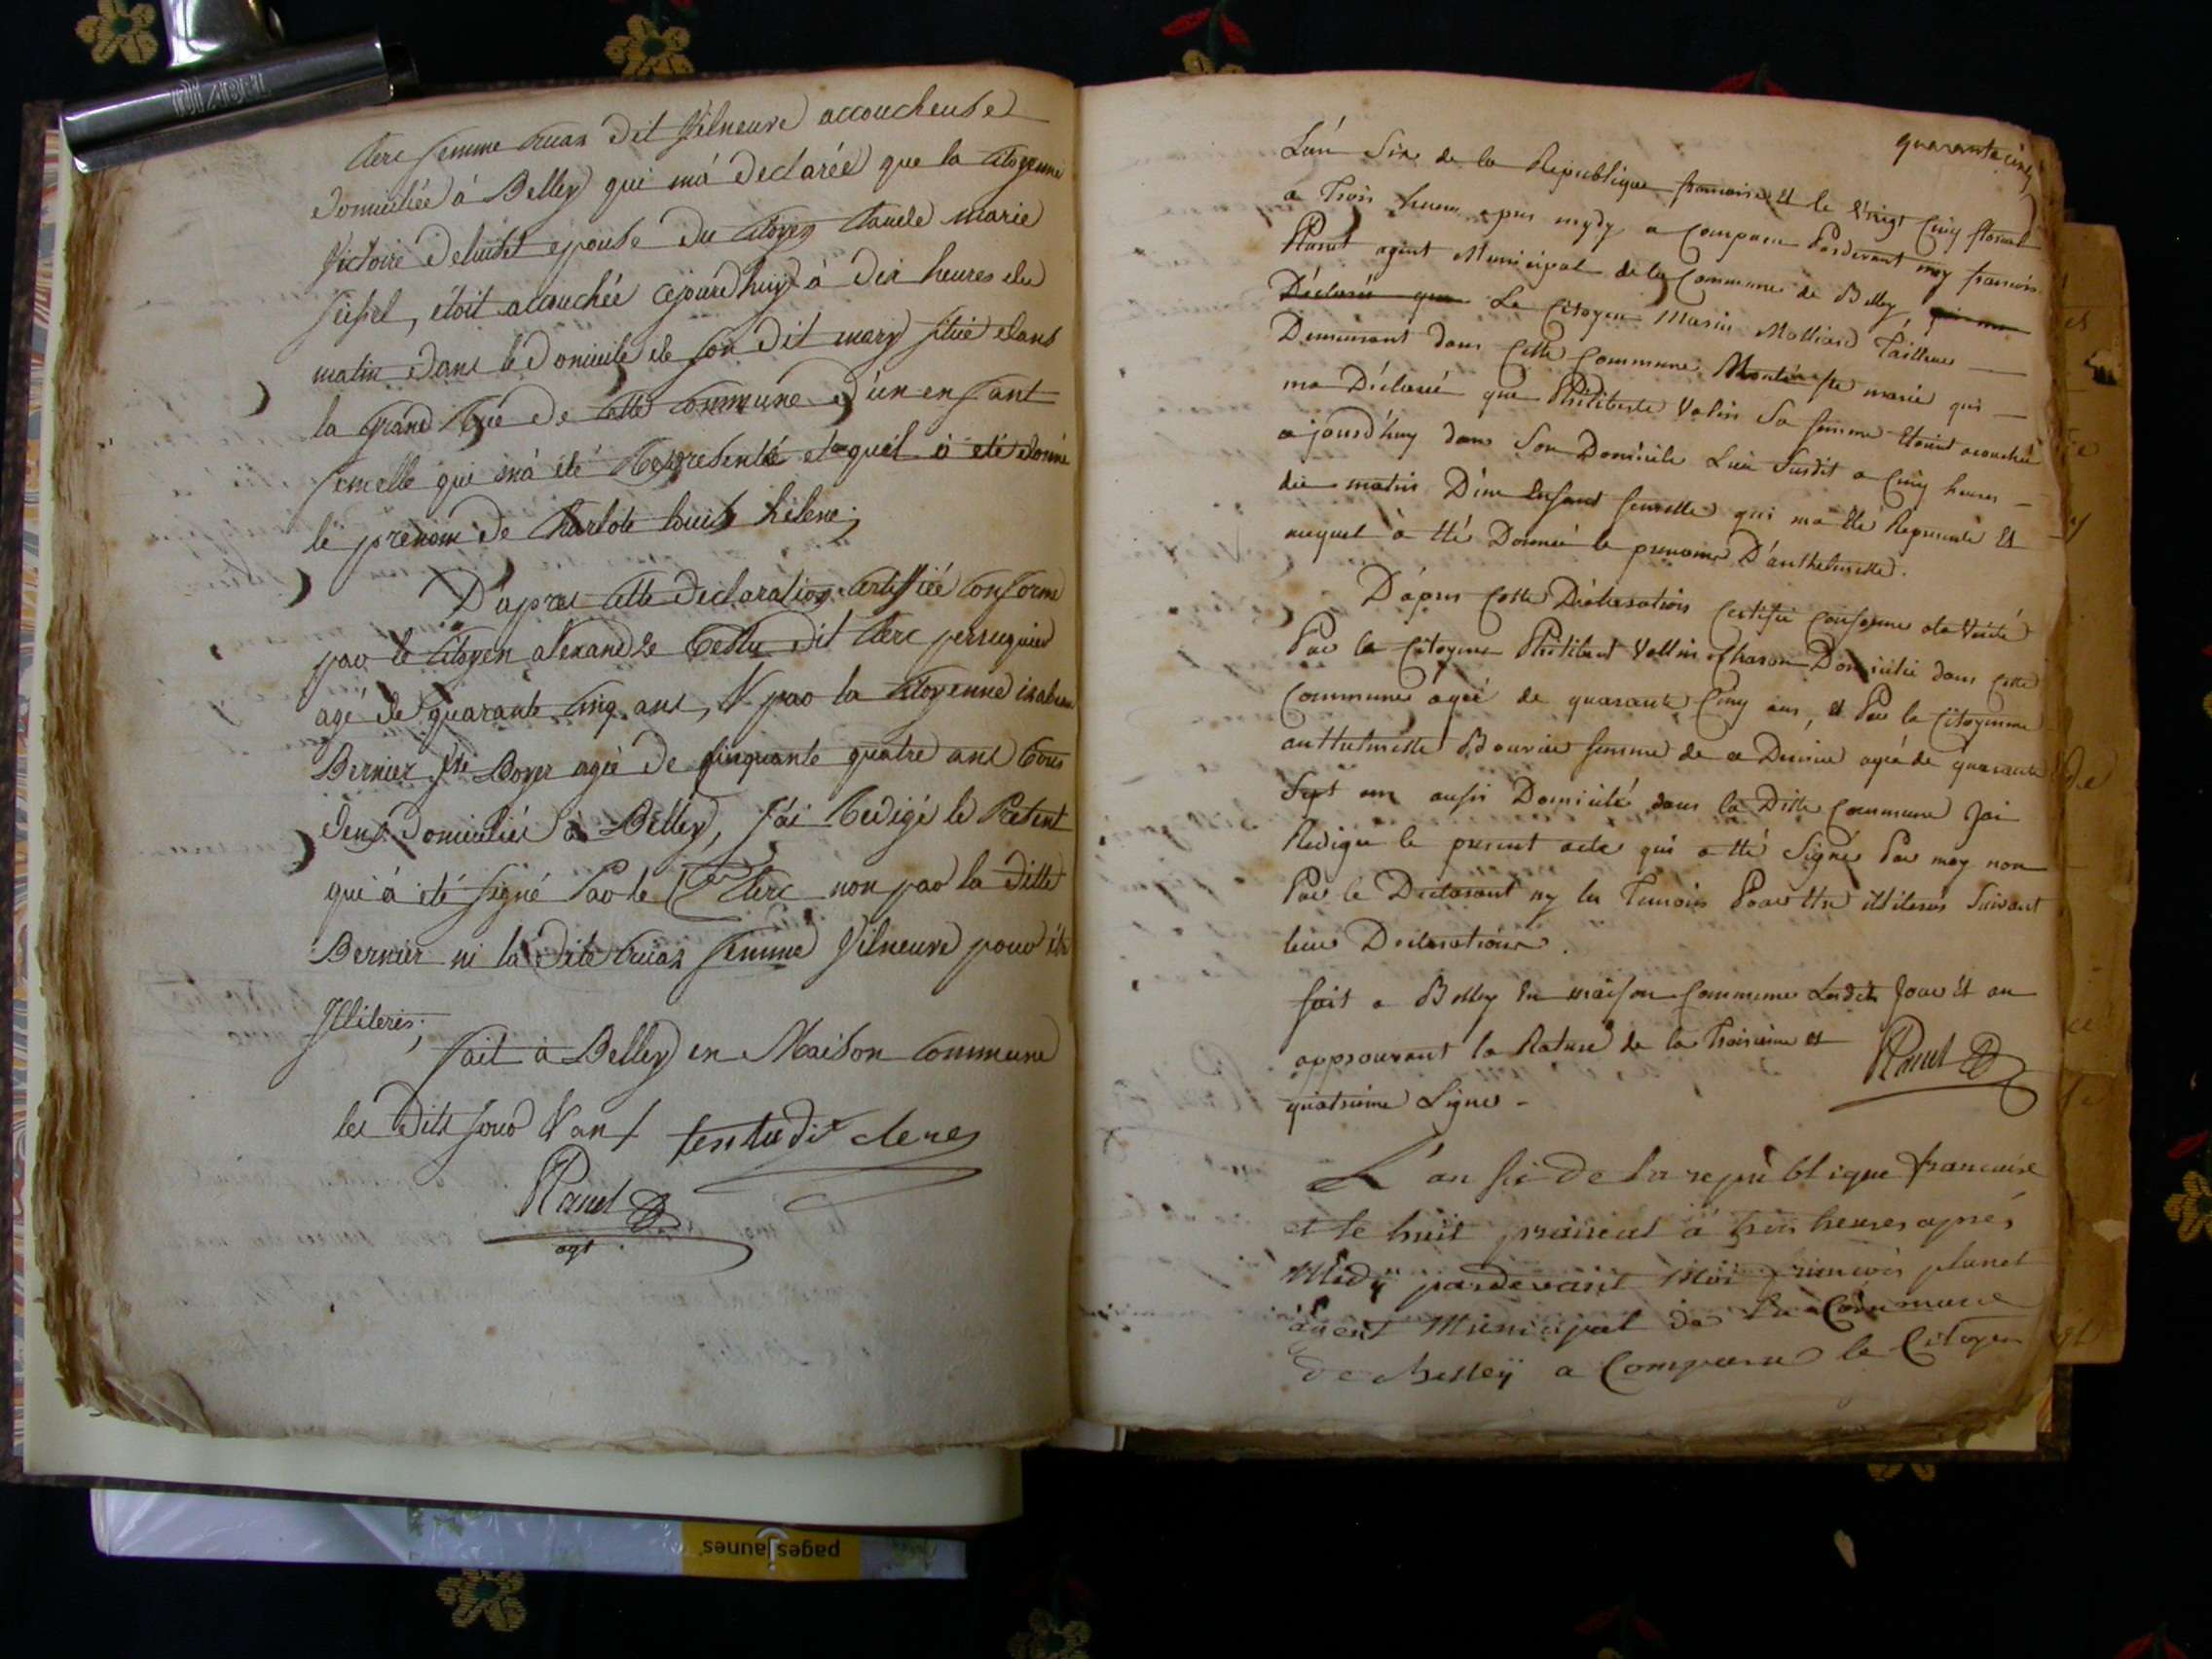 DIABEL
femme cruaz dit Vilneuve accoucheuse
domiciliée à Belley qui m'á declarée que la citoyenne
Victoire epouse du citoyen claude marie
étoit accouchée cejourd'huy à dix heures du
matin dans le domicile de son dit mary situé dans
la grand rue de cette commune d'un enfant
femelle qui m'á été representé et auquel á eté donné
le prenom de charlote louise hélene;
D'apres cette declaration certiffiée conforme
par le citoyen alexandre testu dit clerc perruquier
agé de quarante cinq ans, & par la citoyenne
Bernier Boyer agée de cinquante quatre ans tous
deux domiciliés à Belley, j'ai redigé le Present
qui á eté signé Par le clerc non par la ditte
Bernier ni la dite cruaz femme Vilneuve pour étre
Illiterés;
fait à Belley en Maison commune
les dits jour & an / testu dit clerc
Planet
agt
quarante cinq
L'an Six de la Republique francoise Et le Vingt Cinq floreal
a Trois heures apres mydy a comparu Pardevant moy francois
Planet agent Municipal de la Commune de Belley, qui ma
Déclaré que Le Citoyen Marin Molliard Tailleur
Demeurant dans Cette Commune marié qui
ma Déclaré que Philiberte Valin Sa femme Etoit acouchée
ajourd'huy dans Son Domicile Susdit a Cinq heures
du matin D'un Enfant femelle qui ma Eté Representé Et
auquel à tté Donné le prenom D'anthelmette.
D'apres Cette Déclaration Certifié Conforme ala Verité
Par le Citoyen Philibert Vallin charon Domicilié dans Cette
Commune ágeé de quarante Cinq ans, Et Par la Citoyenne
anthelmette Bouvier femme de agé de quarante
Sept ans aussi Domicilié dans la Ditte Commune Jai
Redigée le present acte qui a tté Signés Par moy non
Par le Declarant ny les Temoins Pour Etre illiteres Suivant
leur Declaration.
fait a Belley En maison Commune Lesdits Jour Et an
approuvant la Rature de la Troisieme et
quatrieme Ligne - Planet
L'an six de la republique francoise
et le huit prairial à trois heures aprés
Midÿ pardevant Moi francois planet
agent Municipal de la Commune
de Belleÿ a Comparu le Citoyen
pagesjaunes